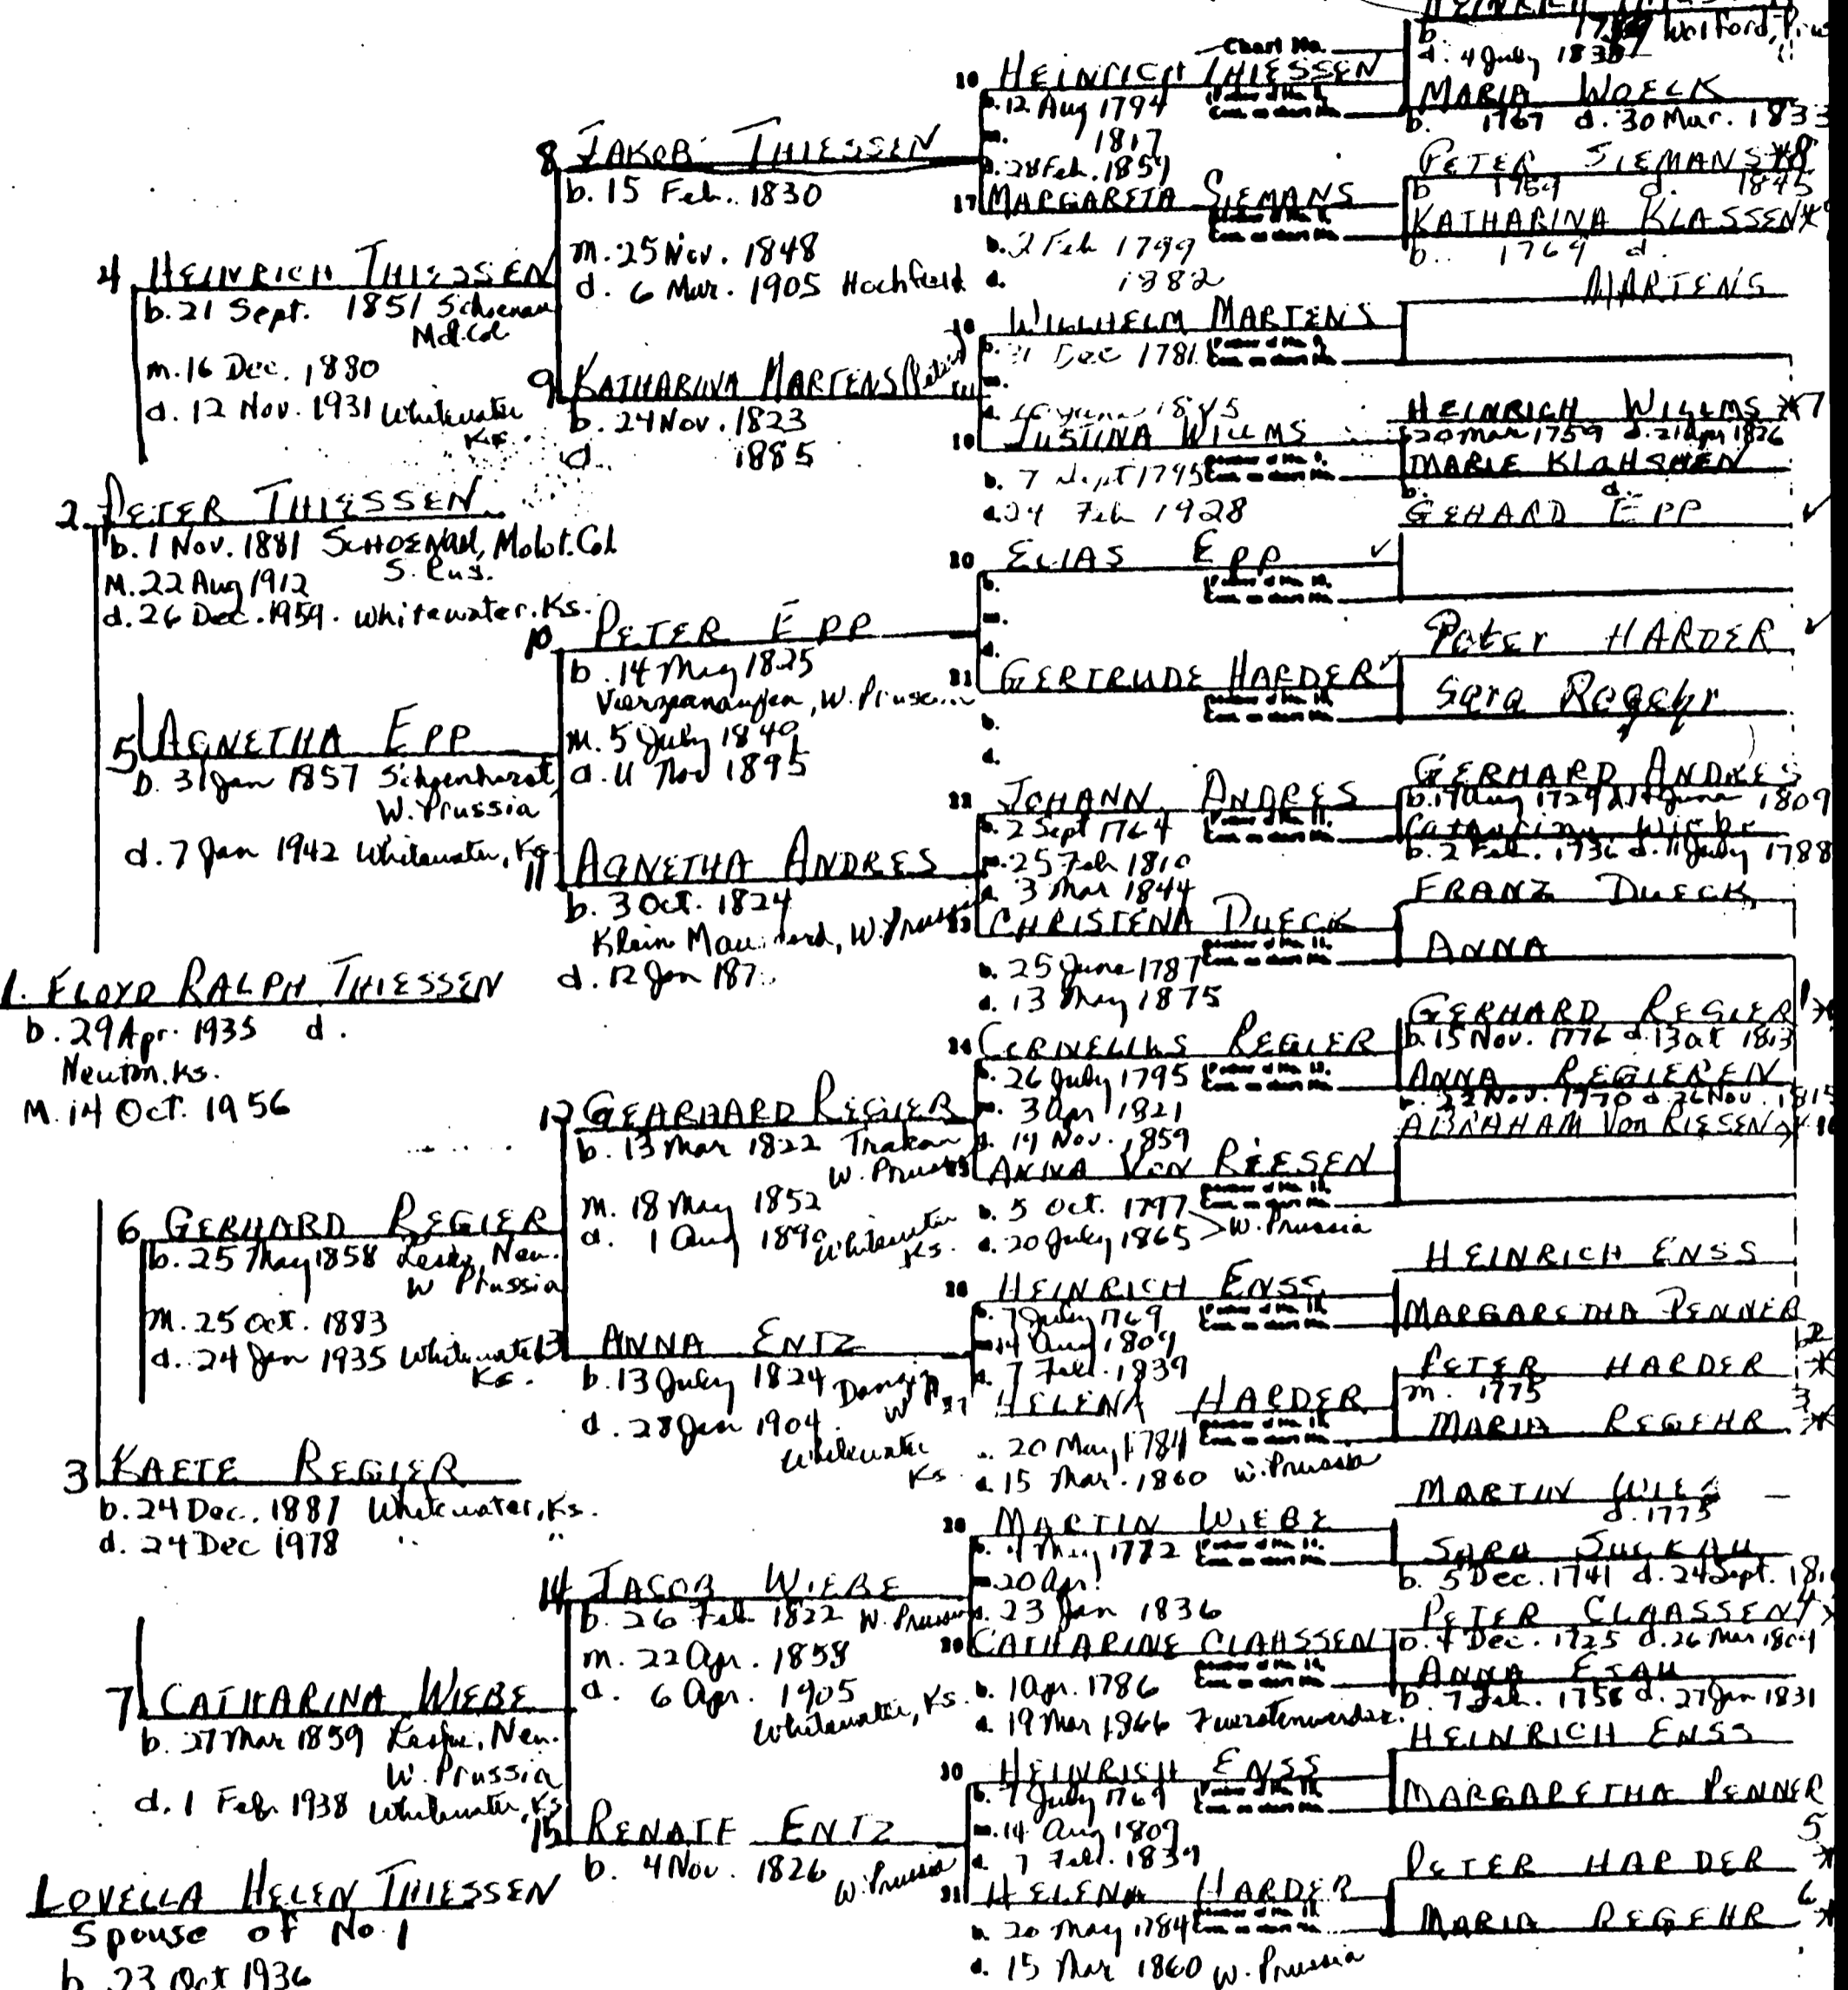 1. FLOYD RALPH THIESSEN
b. 29 Apr. 1935 d.
Newton, Ks.
M. 14 Oct. 1956
LOVELLA HELEN THIESSEN
Spouse of No. 1
b. 23 Oct 1936
2. PETER THIESSEN
b. 1 Nov. 1881 SCHOENAU, Molot. Col
S. Rus.
M. 22 Aug 1912
d. 26 Dec. 1959. Whitewater, Ks.
3 KAETE REGIER
b. 24 Dec. 1881 Whitewater, Ks.
d. 24 Dec 1978 " "
4 HEINRICH THIESSEN
b. 21 Sept. 1851 Schoenau
Mol. Col
m. 16 Dec. 1880
d. 12 Nov. 1931 Whitewater
Ks.
5 AGNETHA EPP
b. 31 Jan 1857 Schoenhorst
W. Prussia
d. 7 Jan 1942 Whitewater, Ks
6 GERHARD REGIER
b. 25 May 1858 Leske, Neu.
W Prussia
m. 25 Oct. 1883
d. 24 Jan 1935 Whitewater
Ks.
7 CATHARINA WIEBE
b. 27 Mar 1859 Leske, Neu.
W. Prussia
d. 1 Feb. 1938 Whitewater, Ks
8 JAKOB THIESSEN
b. 15 Feb. 1830
m. 25 Nov. 1848
d. 6 Mar. 1905 Hochfeld
9 KATHARINA MARTENS
b. 24 Nov. 1823
d. 1885
10 PETER EPP
b. 14 May 1825
W. Prussia
m. 5 July 1849
d. 11 Nov 1895
11 AGNETHA ANDRES
b. 3 Oct. 1824
Klein W. Prussia
d. 12 Jan 187
12 GEARHARD REGIER
b. 13 Mar 1822 Trakan
W. Prussia
m. 18 May 1852
d. 1 Aug 1890 Whitewater
Ks.
13 ANNA ENTZ
b. 13 July 1824 Danzig
W P.
d. 28 Jan 1904
Whitewater
Ks
14 JACOB WIEBE
b. 26 Feb 1822 W. Prussia
m. 22 Apr. 1858
d. 6 Apr. 1905
Whitewater, Ks.
15 RENATE ENTZ
b. 4 Nov. 1826 W. Prussia
Chart No.
16 HEINRICH THIESSEN
b. 12 Aug 1794
m. 1817
d. 28 Feb. 1859
17 MARGARETA SIEMANS
b. 2 Feb 1799
d. 1882
18 WILLHELM MARTENS
b. 31 Dec 1781
m.
d. 1845
19 JUSTINA WILLMS
b. 7 Sept 1795
d. 24 Feb 1928
20 ELIAS EPP ✓
b.
m.
d.
21 GERTRUDE HARDER ✓
b.
d.
22 JOHANN ANDRES
b. 2 Sept 1764
m. 25 Feb 1810
d. 3 Mar 1844
23 CHRISTENA DUECK
b. 25 June 1787
d. 13 May 1875
24 CORNELIUS REGIER
b. 26 July 1795
m. 3 Apr 1821
d. 19 Nov. 1859
25 ANNA VON RIESEN
b. 5 Oct. 1797
d. 20 July 1865 > W. Prussia
26 HEINRICH ENSS
b. 7 July 1769
m. 14 Aug 1809
d. 7 Feb. 1839
27 HELENA HARDER
b. 20 May 1784
d. 15 Mar. 1860 W. Prussia
28 MARTIN WIEBE
b. May 1772
m. 20 Apr.
d. 23 Jan 1836
29 CATHARINE CLAHSSEN
b. 1 Apr. 1786
d. 19 Mar 1866 Fuerstenwerder
30 HEINRICH ENSS
b. 7 July 1769
m. 14 Aug 1809
d. 7 Feb. 1839
31 HELENA HARDER
b. 20 May 1784
d. 15 Mar 1860 W. Prussia
HEINRICH
d. 4 July
MARIA WOELK
b. 1767 d. 30 Mar. 1833
PETER SIEMANS *8
b 1759 d. 1845
KATHARINA KLASSEN *
b. 1769 d.
MARTENS
HEINRICH WILLMS *7
b 20 Mar 1759 d. 21 Apr 1826
MARIE KLAHSSEN
b. d.
GEHARD EPP ✓
Peter HARDER ✓
Sara Regehr
GERHARD ANDRES
b. 19 Aug 1729 d. June 1809
Catharina Wiebe
b. 2 Feb. 1736 d. 11 July 1788
FRANZ DUECK
ANNA
GERHARD REGIER 1*
b. 15 Nov. 1776 d. 13 Oct 1813
ANNA REGIEREN
b. 22 Nov. 1770 d. 26 Nov. 1815
ABRAHAM Von RIESEN *
HEINRICH ENSS
MARGARETHA PENNER
PETER HARDER 2*
m. 1775
MARIA REGEHR 3*
MARTIN
d. 1775
SARA SUCKAU
b. 5 Dec. 1741 d. 24 Sept.
PETER CLAASSEN 4*
b. 4 Dec. 1725 d. 26 Mar
ANNA ESAU
b. 7 Feb. 1758 d. 27 Jan 1831
HEINRICH ENSS
MARGARETHA PENNER
PETER HARDER 5*
MARIA REGEHR 6*